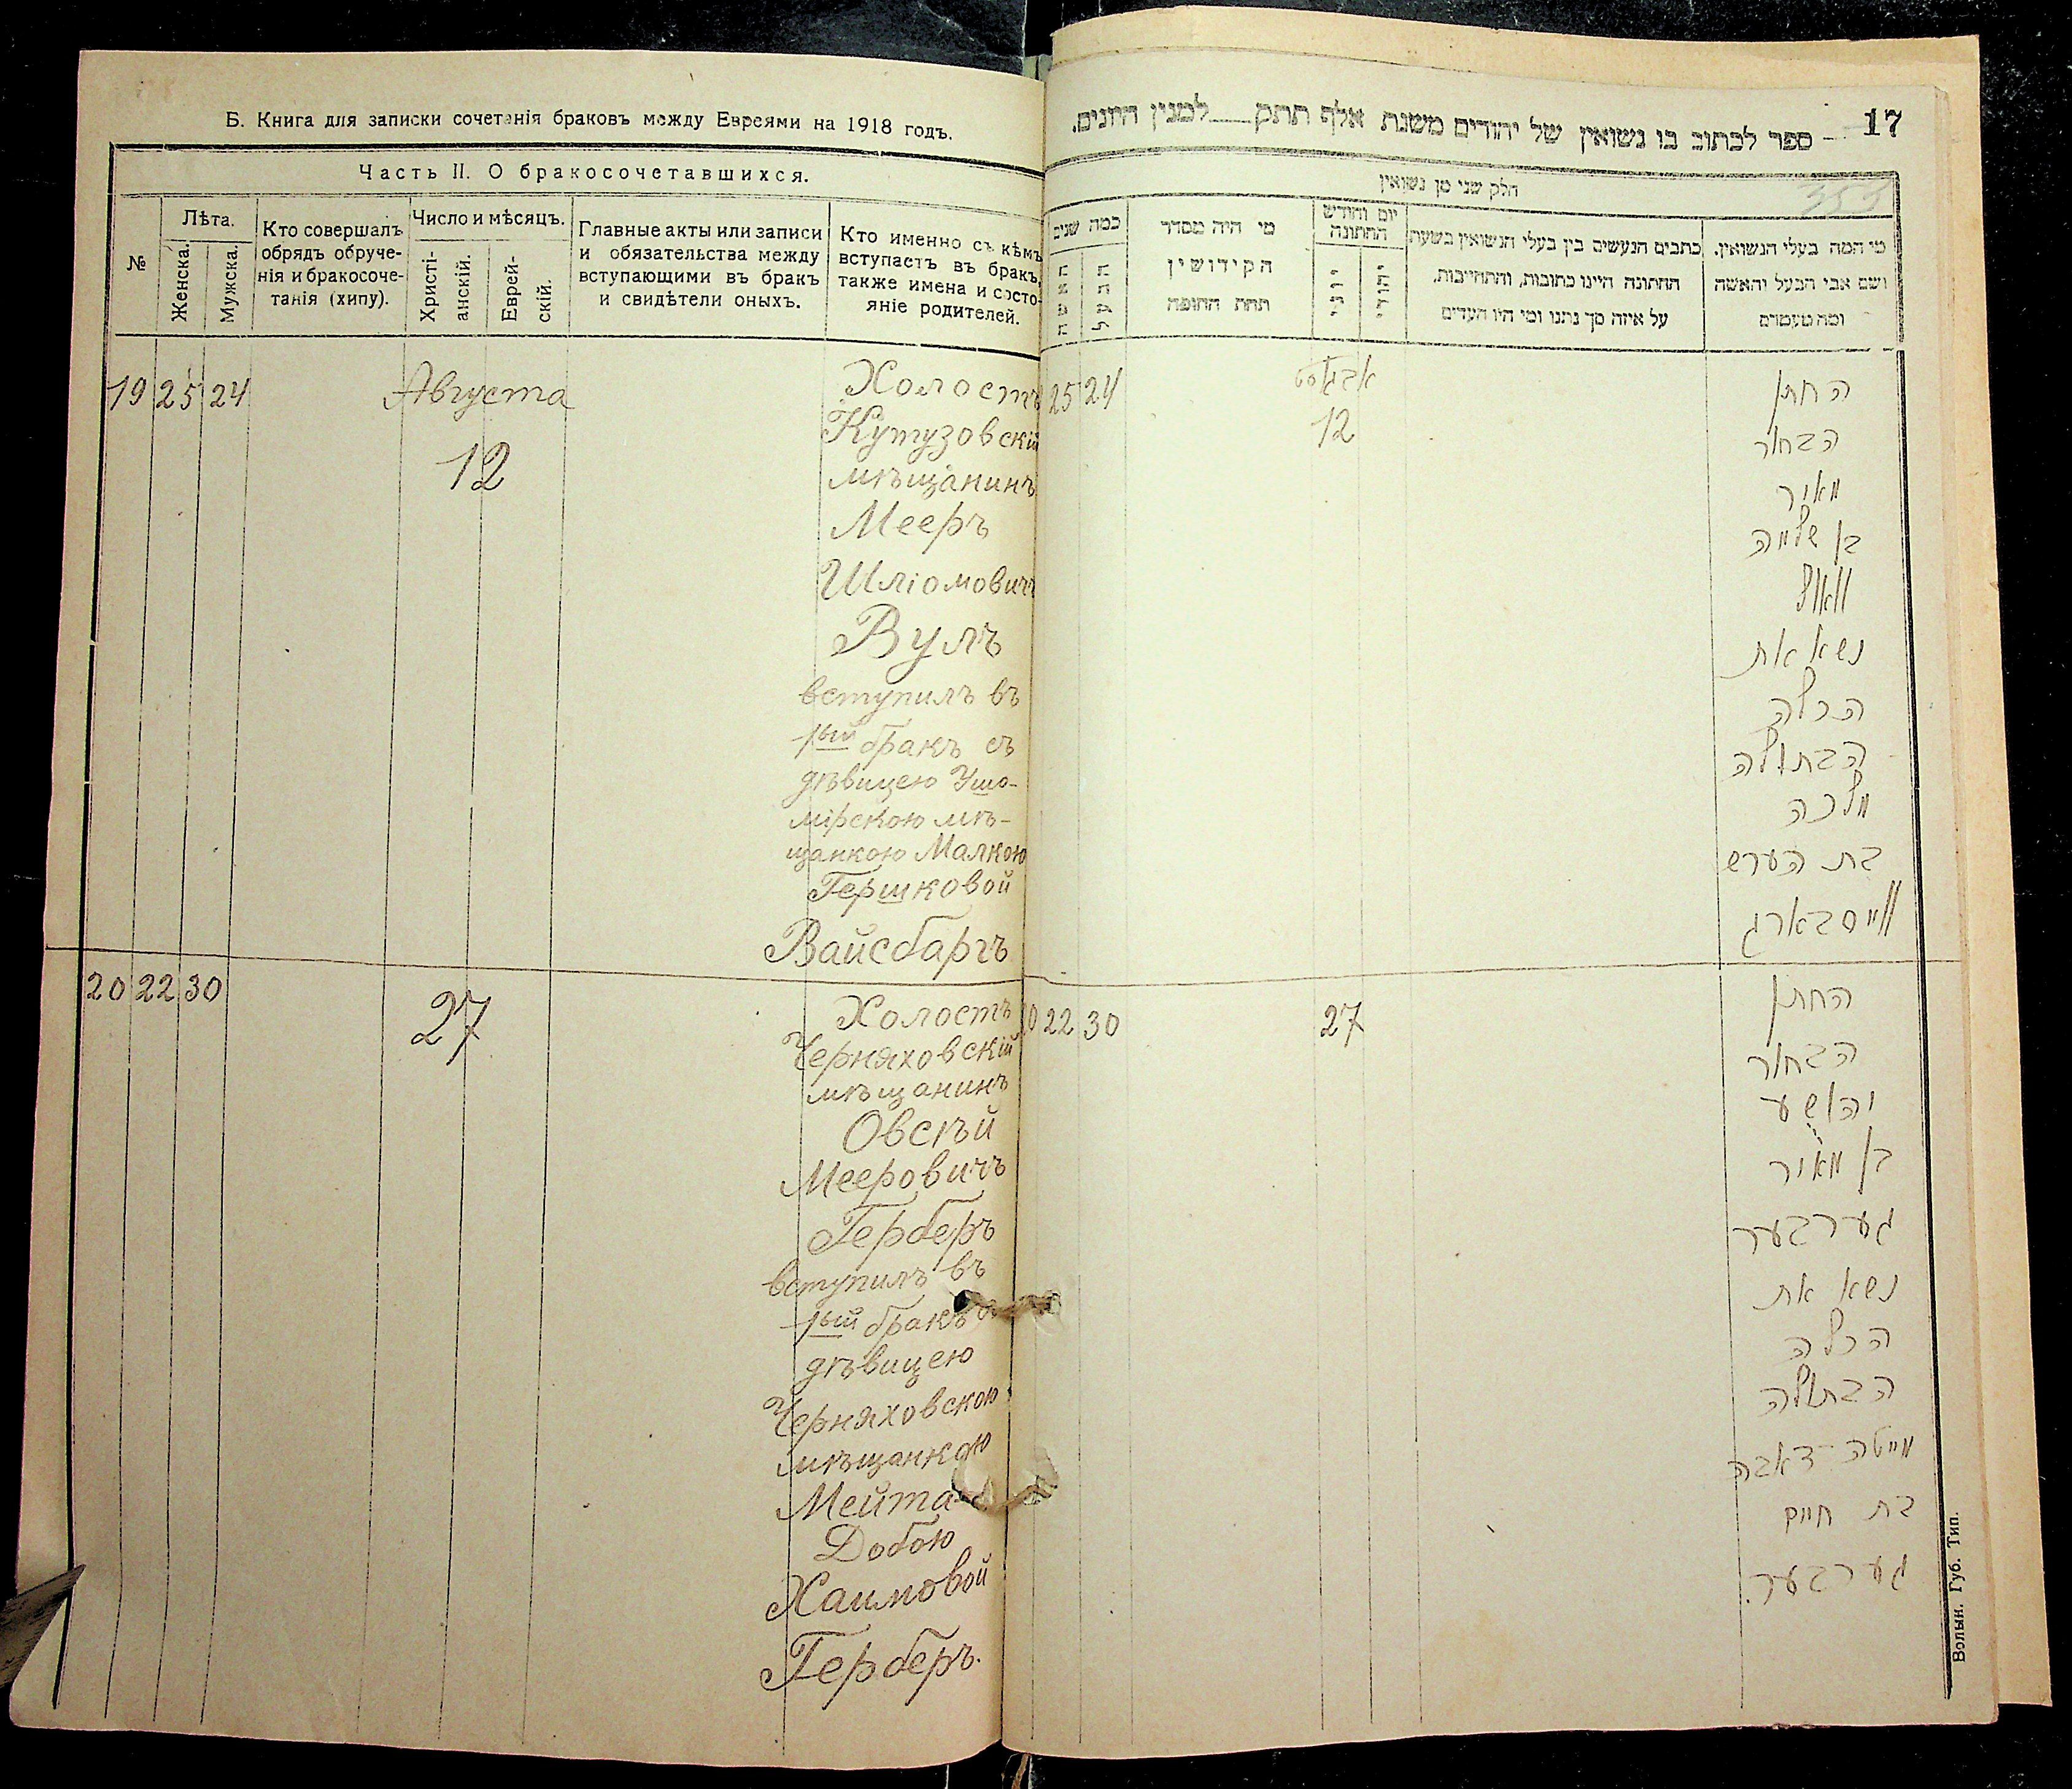 Б. Книга для записки сочетанія браковъ между Евреями на 1918 годъ.
Часть II. О бракосочетавшихся.
№
Лѣта.
Женска.
Мужска.
Кто совершалъ
обрядъ обруче-
нія и бракосоче-
танія (хипу).
Число и мѣсяцъ.
Христі-
анскій.
Еврей-
скій.
Главные акты или записи
и обязательства между
вступающими въ бракъ
и свидѣтели оныхъ.
Кто именно съ кѣмъ
вступаетъ въ бракъ,
также имена и состо-
яніе родителей.
19 25 24
Августа
12
Холостъ
Кутузовскій
мѣщанинъ
Мееръ
Шліомовичъ
Вулъ
вступилъ въ
1ый бракъ съ
дѣвицею Ушо-
мірскою мѣ-
щанкою Малкою
Гершковой
Вайсбаргъ
20 22 30
27
Холостъ
Черняховскій
мѣщанинъ
Овсѣй
Мееровичъ
Герберъ
вступилъ въ
1ый бракъ съ
дѣвицею
Черняховскою
мѣщанкою
Мейта-
Добою
Хаимовой
Герберъ.
17
ספר לכתוב בו נשואין של יהודים משנת אלף תתק למנין היונים.
353
חלק שני מן נשואין
כמה שנים
האשה
הבעל
מי היה מסדר
הקידושין
תחת החופה
יום וחודש
החתונה
יוני
יהודי
כתבים הנעשים בין בעלי הנשואין בשעת
החתונה היינו כתובות, והתחייבות,
על איזה סך נתנו ומי היו העדים
מי המה בעלי הנשואין.
ושם אבי הבעל והאשה
ומה מעמדם
25 24
אבגוסט
12
החתן
הבחור
מאיר
בן שלמה
וואול
נשא את
הכלה
הבתולה
מלכה
בת הערש
ווייסבארג
20 22 30
27
החתן
הבחור
יהושע
בן מאיר
גערבער
נשא את
הכלה
הבתולה
מייטה-דאבה
בת חיים
גערבער.
Волын. Губ. Тип.